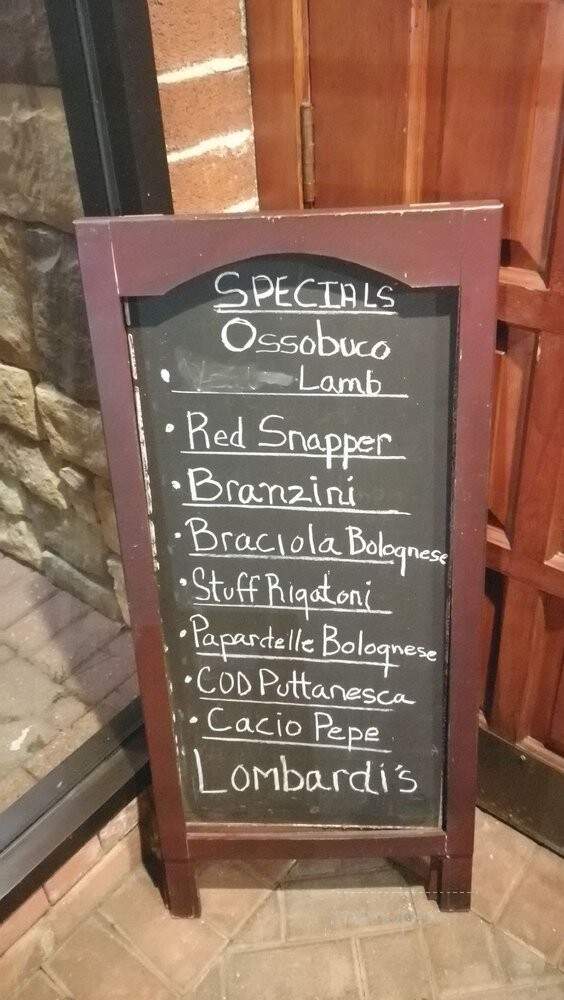 SPECIALS
Ossobuco
• Lamb
• Red Snapper
• Branzini
• Braciola Bolognese
• Stuff Rigatoni
• Papardelle Bolognese
• COD Puttanesca
• Cacio Pepe
Lombardi's